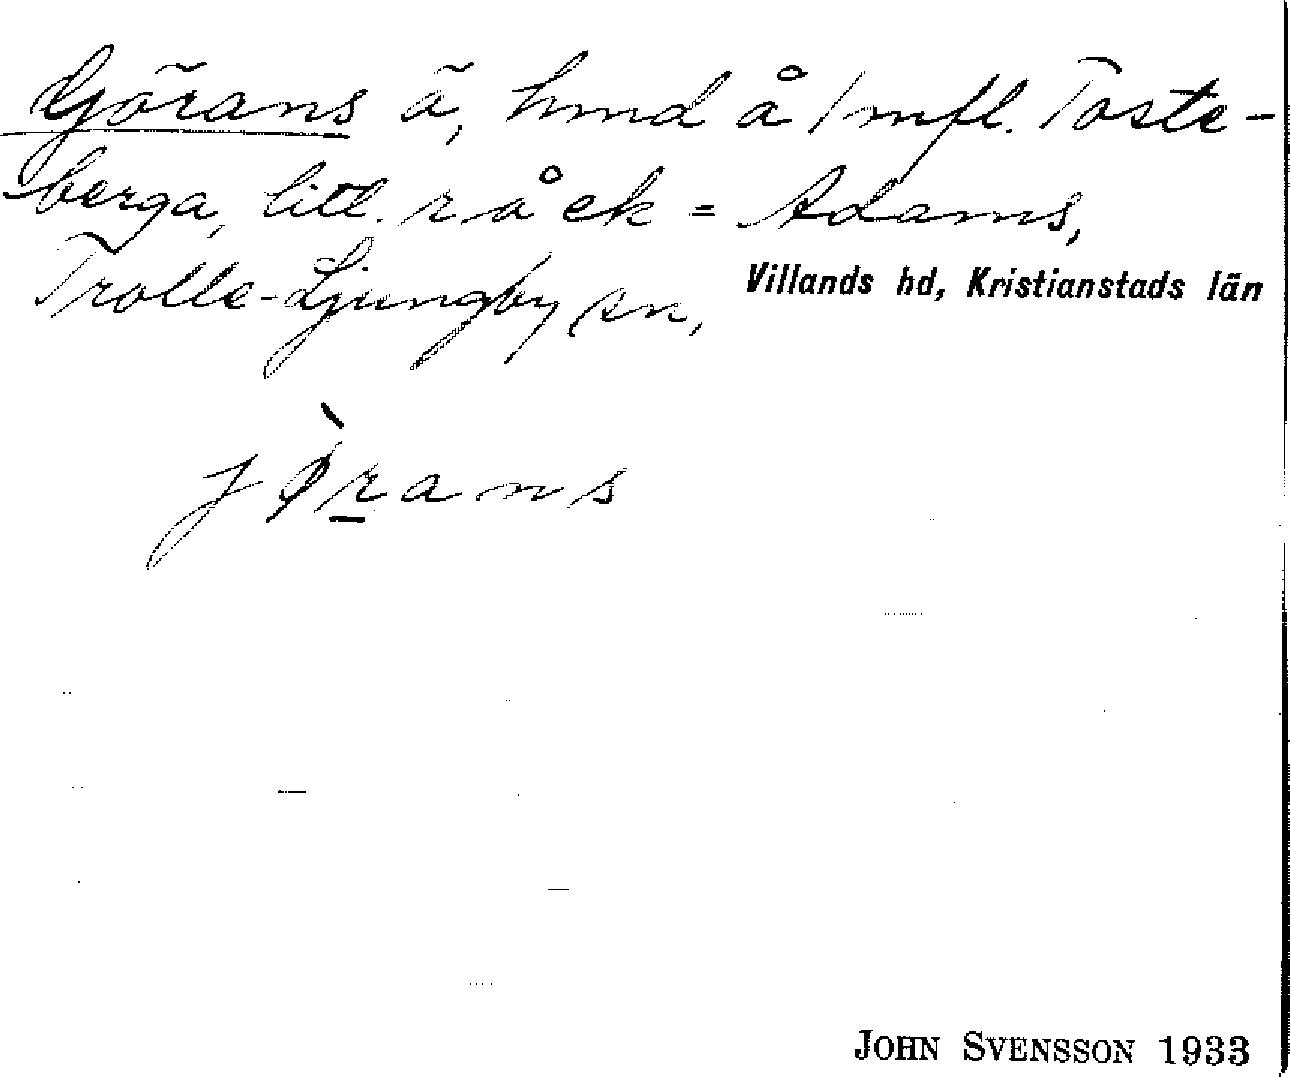 Görans ä, hmd å 1 mfl. Toste-
berga, litt. r. å ek = Adams,
Trolle-Ljungby sn, Villands hd, Kristianstads län
jørans
JOHN SVENSSON 1933